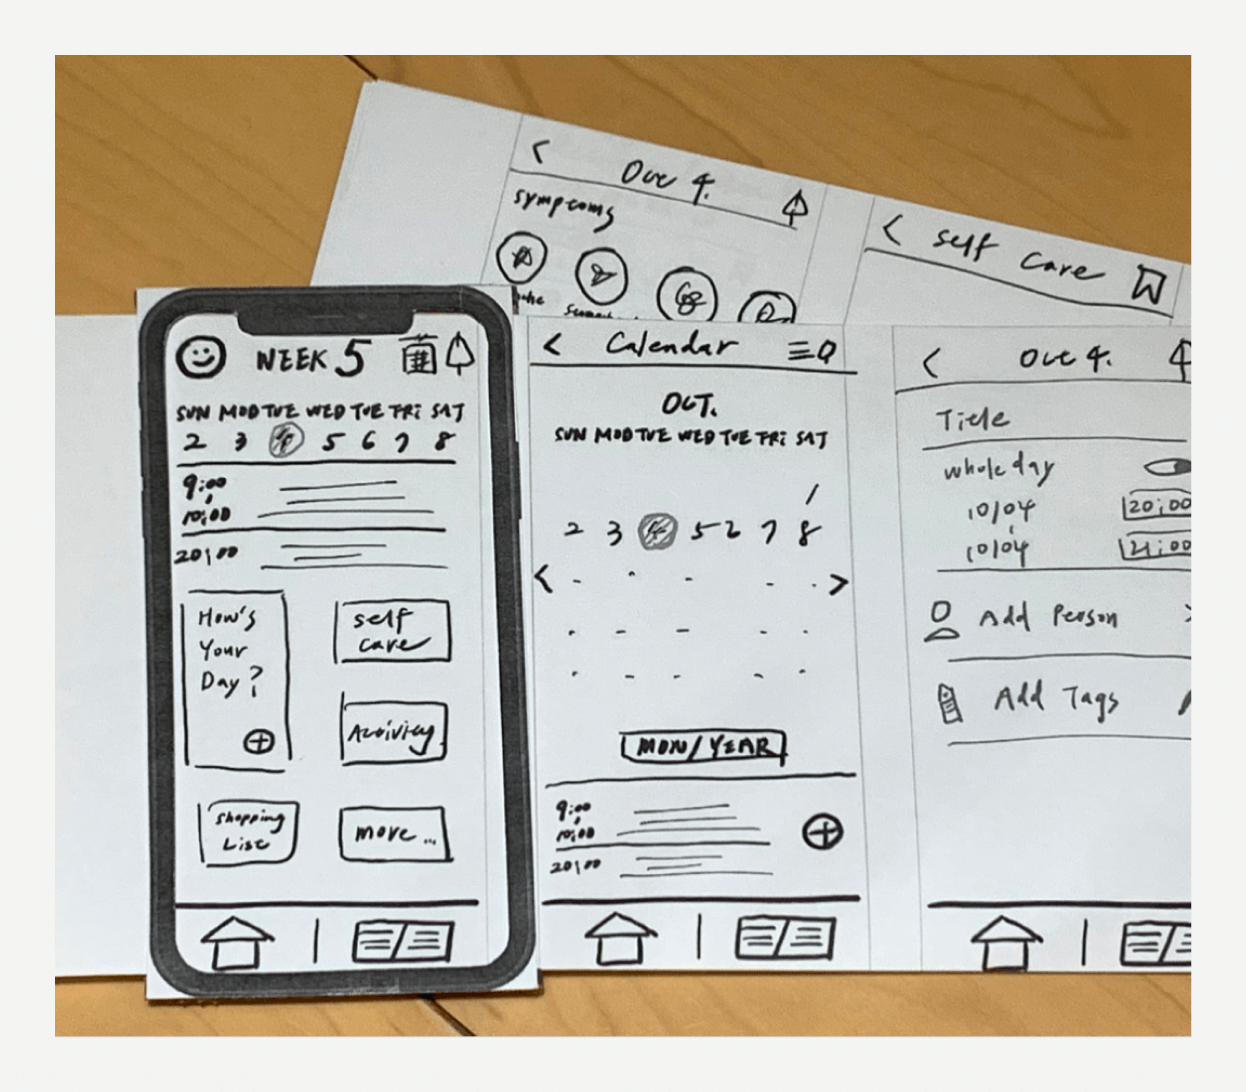 < Oct 4.
Symptoms
< Self Care
WEEK 5
SUN MOD TUE WED TUE FRI SAT
2 3 4 5 6 7 8
9:00
10:00
20:00
How's
Your
Day?
Self
Care
Activity
Shopping
List
more...
< Calendar
OCT.
SUN MOD TUE WED TUE FRI SAT
1
2 3 4 5 6 7 8
< >
MON/YEAR
9:00
10:00
20:00
< Oct 4.
Title
whole day
10/04 20:00
10/04 21:00
Add Person >
Add Tags